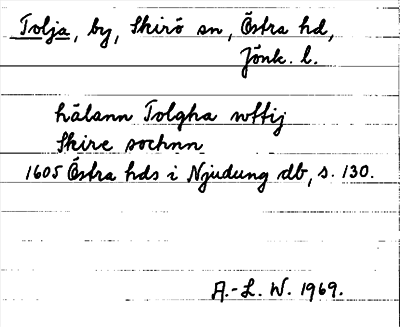 Tolja, by, Skirö sn, Östra hd,
Jönk. l.
hälann Tolgha wttij
Skire sochnn
1605 Östra hds i Njudung db, s. 130.
A.-L. W. 1969.